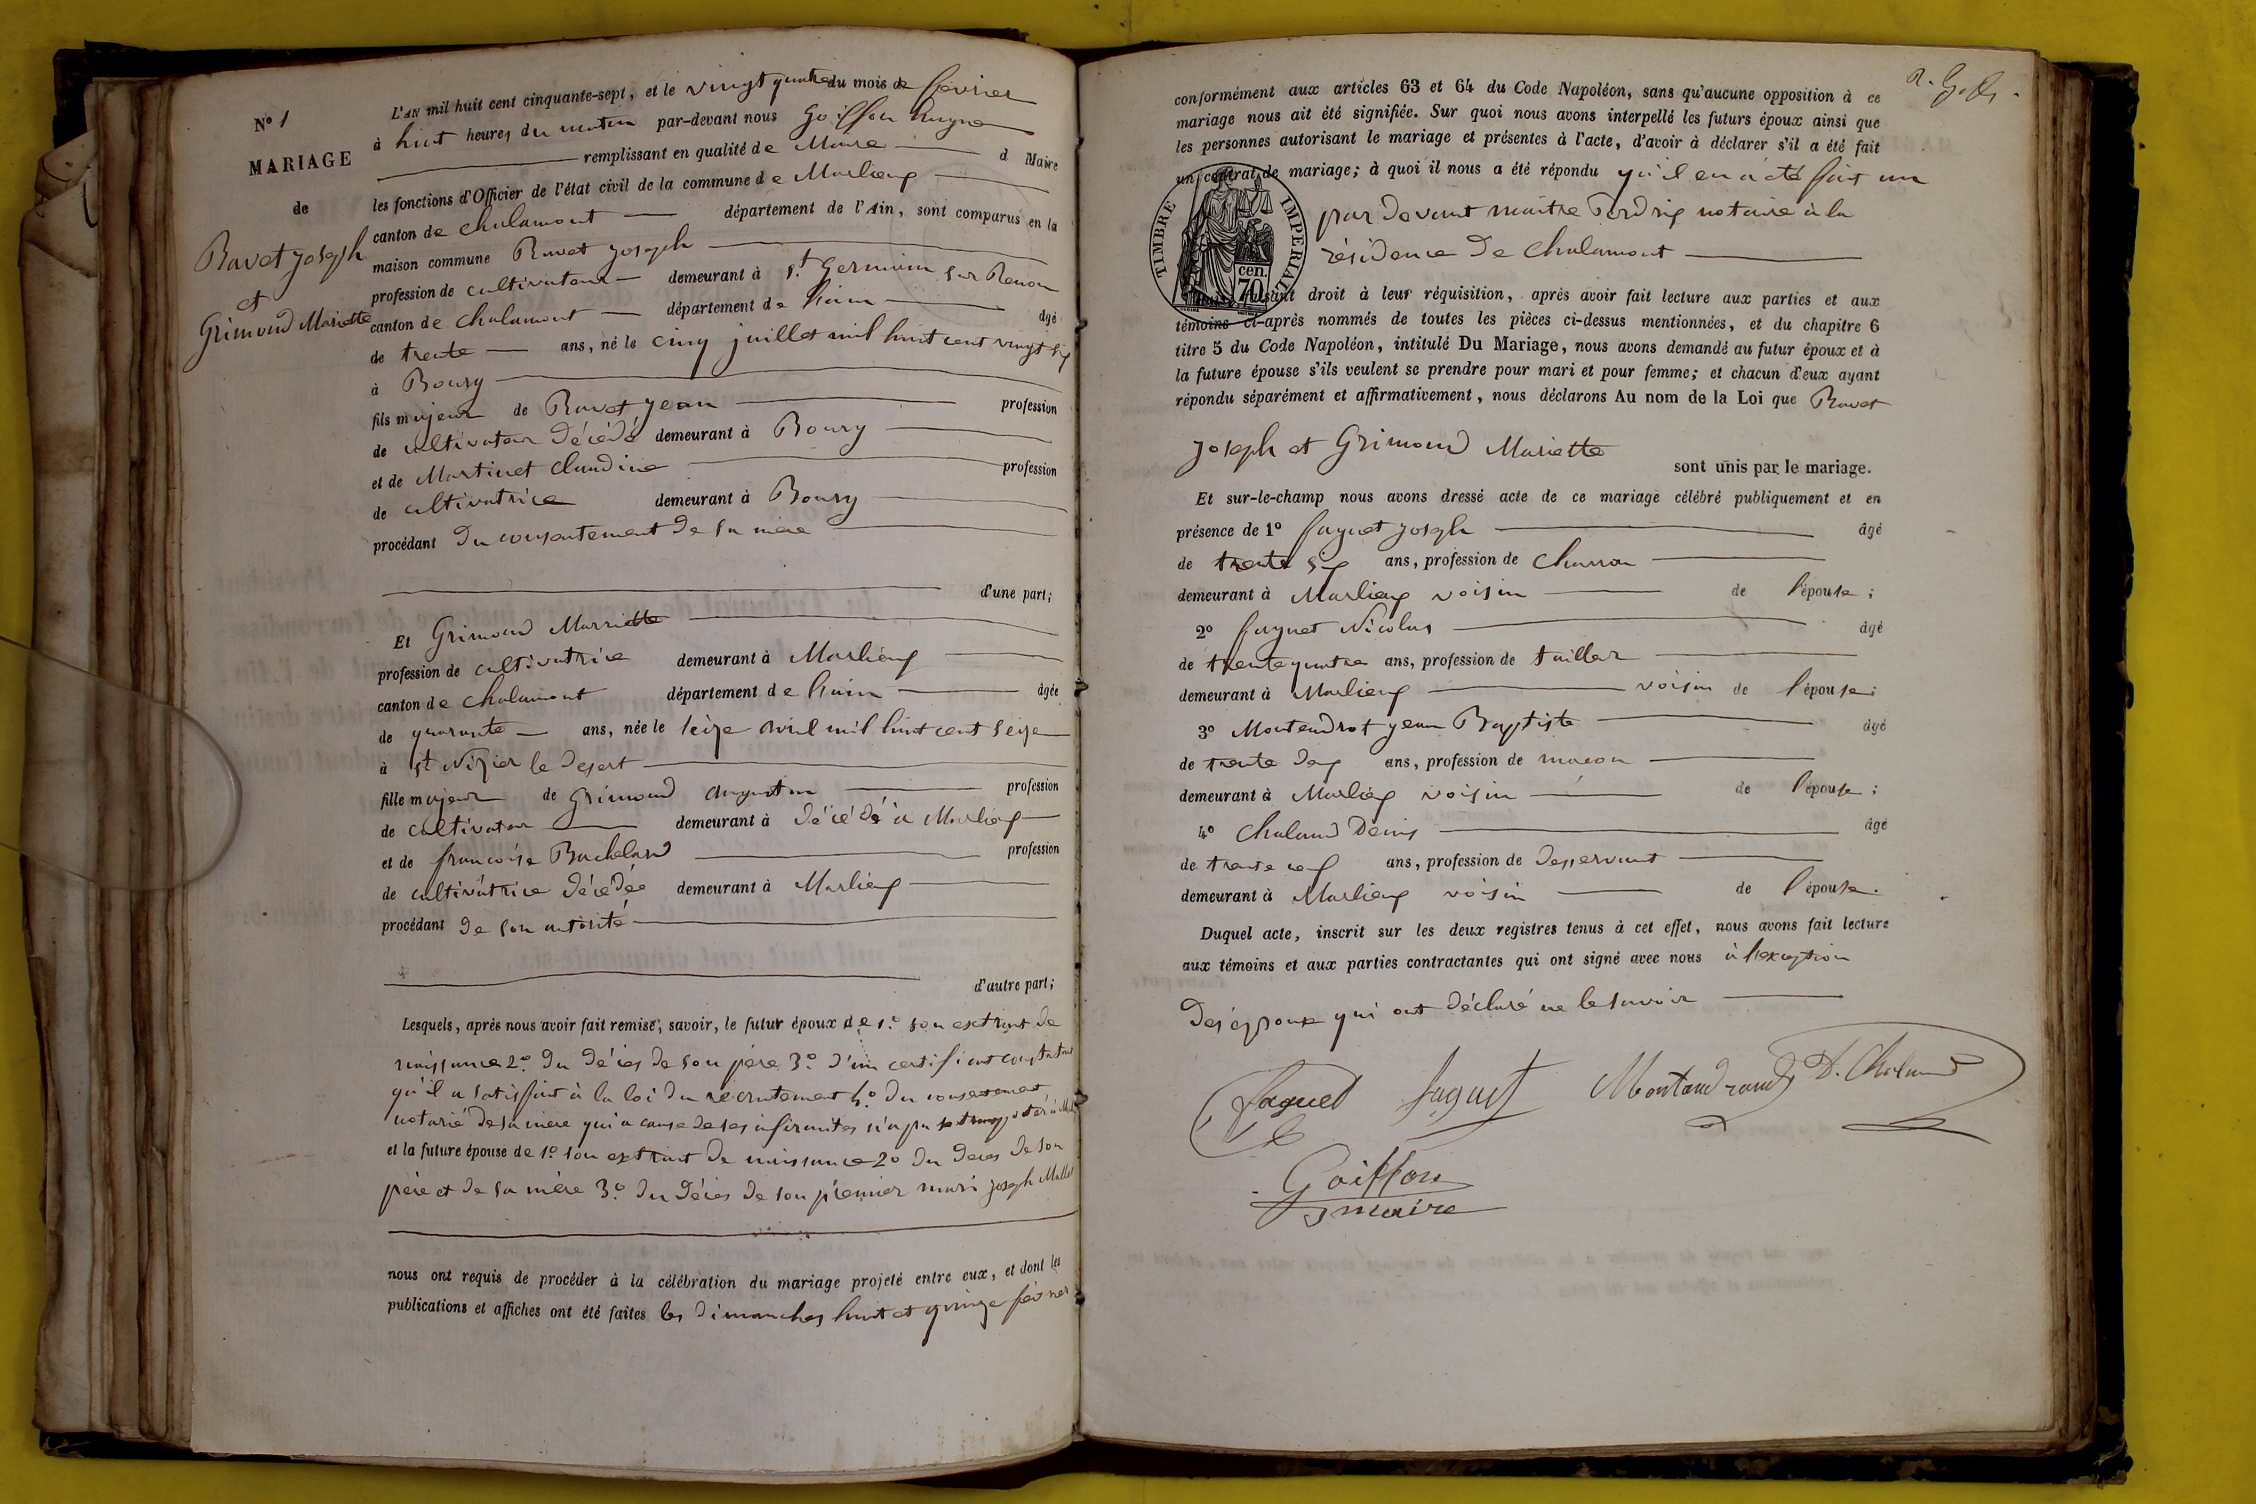 N° 1
MARIAGE
de
Ravet Joseph
et
Grimoud Mariette
L'AN mil huit cent cinquante-sept, et le vingt quatre du mois de février
à huit heures du matin par-devant nous Goiffon
remplissant en qualité de Maire d Maire
les fonctions d'Officier de l'état civil de la commune de Marlieux
canton de chalamont département de l'Ain, sont comparus en la
maison commune Ravet Joseph
profession de cultivateur demeurant à st Germain sur Renon
canton de chalamont département de l'ain âgé
de trente ans, né le cinq juillet mil huit cent vingt six
à Bourg
fils majeur de Ravet jean profession
de cultivateur décédé demeurant à Bourg
et de Martinet claudine profession
de cultivatrice demeurant à Bourg
procédant du consentement de sa mère
d'une part;
Et Grimoud Marriette
profession de cultivatrice demeurant à Marlieux
canton de chalamont département de l'ain âgée
de quarante ans, née le seize avril mil huit cent seize
à st Nizier le desert
fille majeur de Grimoud augustin profession
de cultivateur demeurant à décédé à Marlieux
et de francoise Bachelard profession
de cultivatrice décédée demeurant à Marlieux
procédant de son autorité
d'autre part;
Lesquels, après nous avoir fait remise, savoir, le futur époux de 1.° son extrait de
naissance 2.° du décès de son père 3.° d'un certificat constatant
qu'il a satisfait à la loi du recrutement 4.° du consentement
notarié de sa mère qui a cause de ses infirmités n'a pu se transporter à
et la future épouse de 1.° son extrait de naissance 2° du deces de son
père et de sa mère 3.° du décès de son premier mari joseph Mallet
nous ont requis de procéder à la célébration du mariage projeté entre eux, et dont les
publications et affiches ont été faites les dimanches huit et quinze février
conformément aux articles 63 et 64 du Code Napoléon, sans qu'aucune opposition à ce
mariage nous ait été signifiée. Sur quoi nous avons interpellé les futurs époux ainsi que
les personnes autorisant le mariage et présentes à l'acte, d'avoir à déclarer s'il a été fait
un contrat de mariage; à quoi il nous a été répondu qu'il en a été fait un
par devant maitre Perdrix notaire à la
résidence de chalamont
TIMBRE IMPERIAL
70 cen.
faisant droit à leur réquisition, après avoir fait lecture aux parties et aux
témoins ci-après nommés de toutes les pièces ci-dessus mentionnées, et du chapitre 6
titre 5 du Code Napoléon, intitulé Du Mariage, nous avons demandé au futur époux et à
la future épouse s'ils veulent se prendre pour mari et pour femme; et chacun d'eux ayant
répondu séparément et affirmativement, nous déclarons Au nom de la Loi que Ravet
Joseph et Grimoud Mariette
sont unis par le mariage.
Et sur-le-champ nous avons dressé acte de ce mariage célébré publiquement et en
présence de 1° faguet joseph âgé
de trente six ans, profession de charron
demeurant à Marlieux voisin de l'épouse;
2° faguet Nicolas âgé
de trente quatre ans, profession de tailler
demeurant à Marlieux voisin de l'épouse;
3° Montendrot jean Baptiste âgé
de trente deux ans, profession de macon
demeurant à Marlieux voisin de l'épouse;
4° Chaland Denis âgé
de trente neuf ans, profession de desservant
demeurant à Marlieux voisin de l'épouse.
Duquel acte, inscrit sur les deux registres tenus à cet effet, nous avons fait lecture
aux témoins et aux parties contractantes qui ont signé avec nous à l'exception
des époux qui ont déclaré ne le savoir
faguet faguet Montandraud D. Chaland
Goiffon
maire